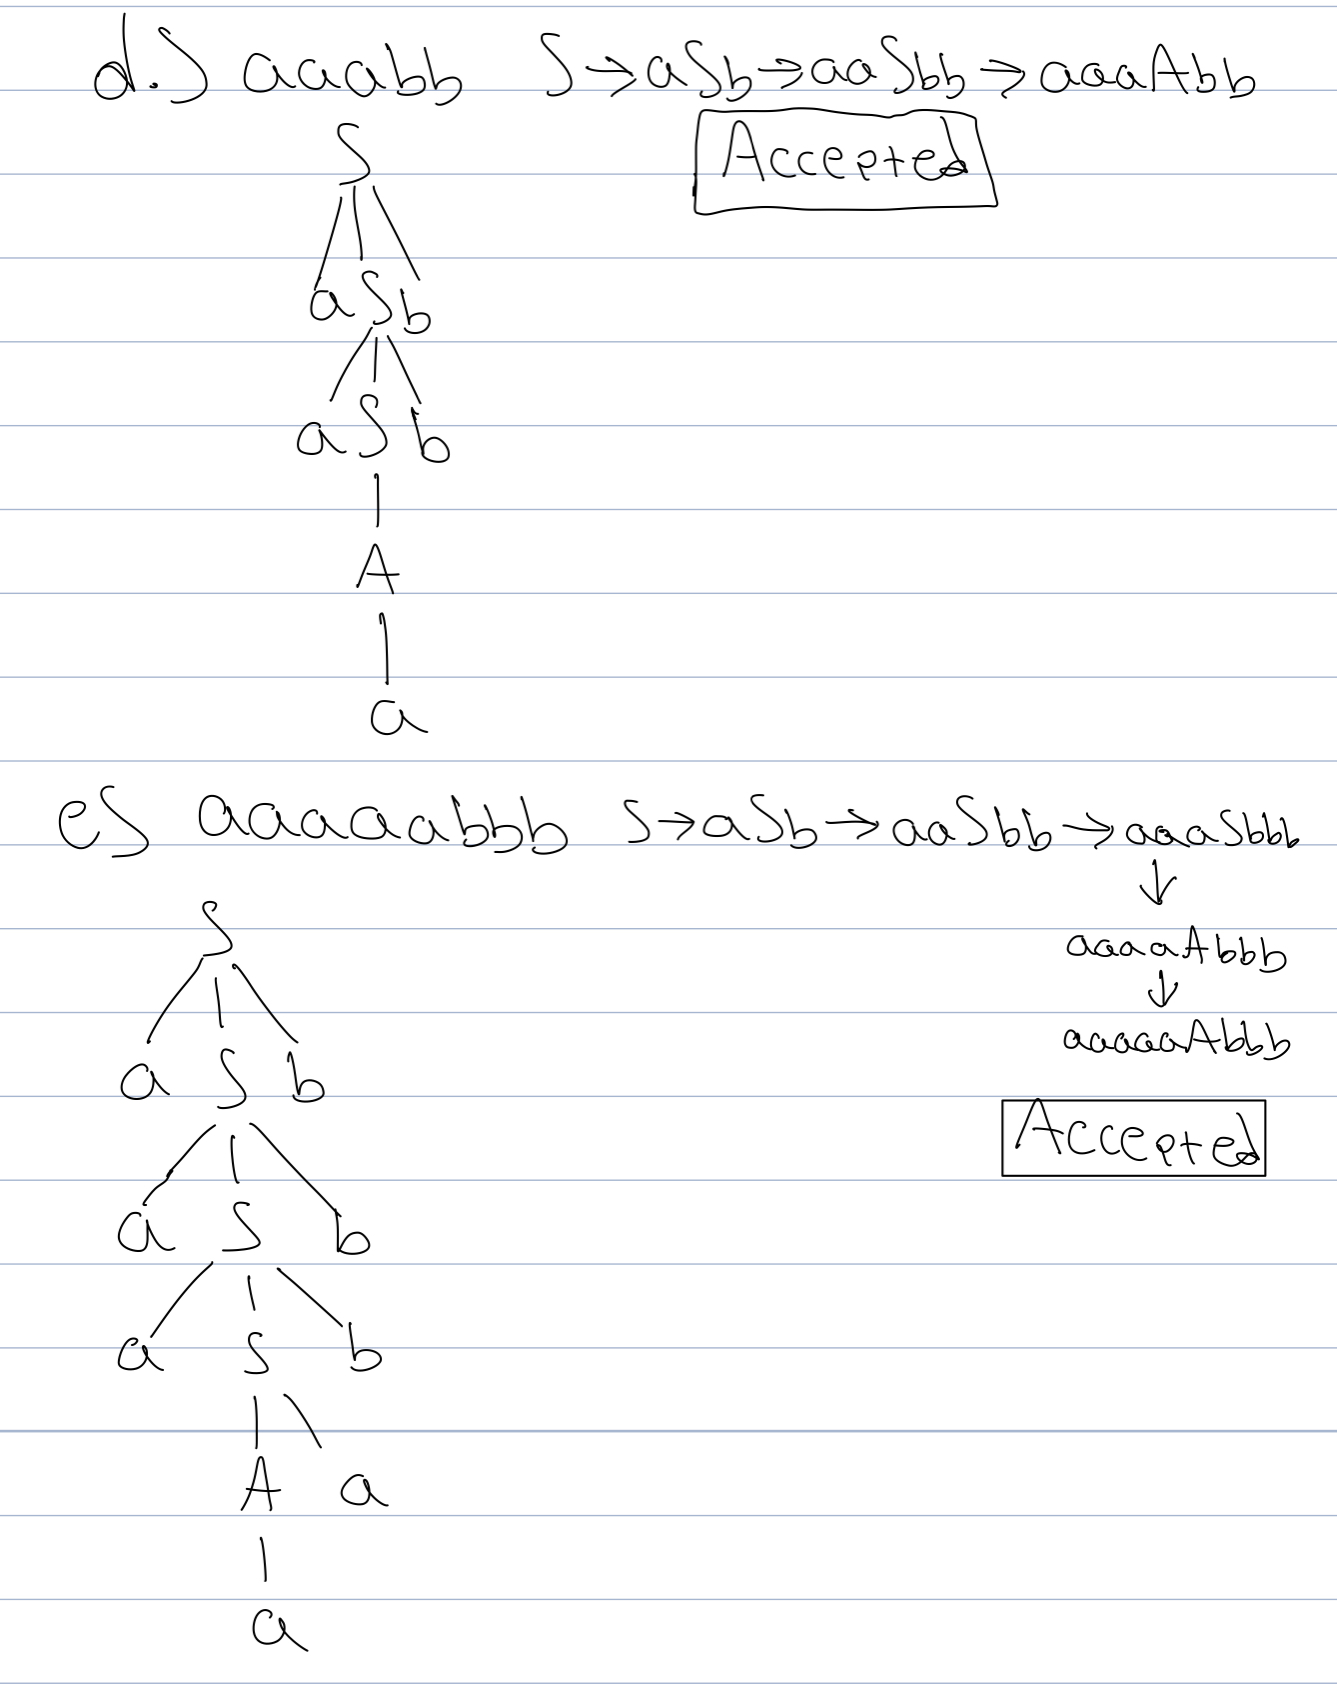 d.) aaabb S→aSb→aaSbb→aaaAbb
Accepted
S
a S b
a S b
A
a
e) aaaaabbb S→aSb→aaSbb→aaaSbbb
↓
aaaaAbbb
↓
aaaaaAbbb
Accepted
S
a S b
a S b
a S b
A a
a